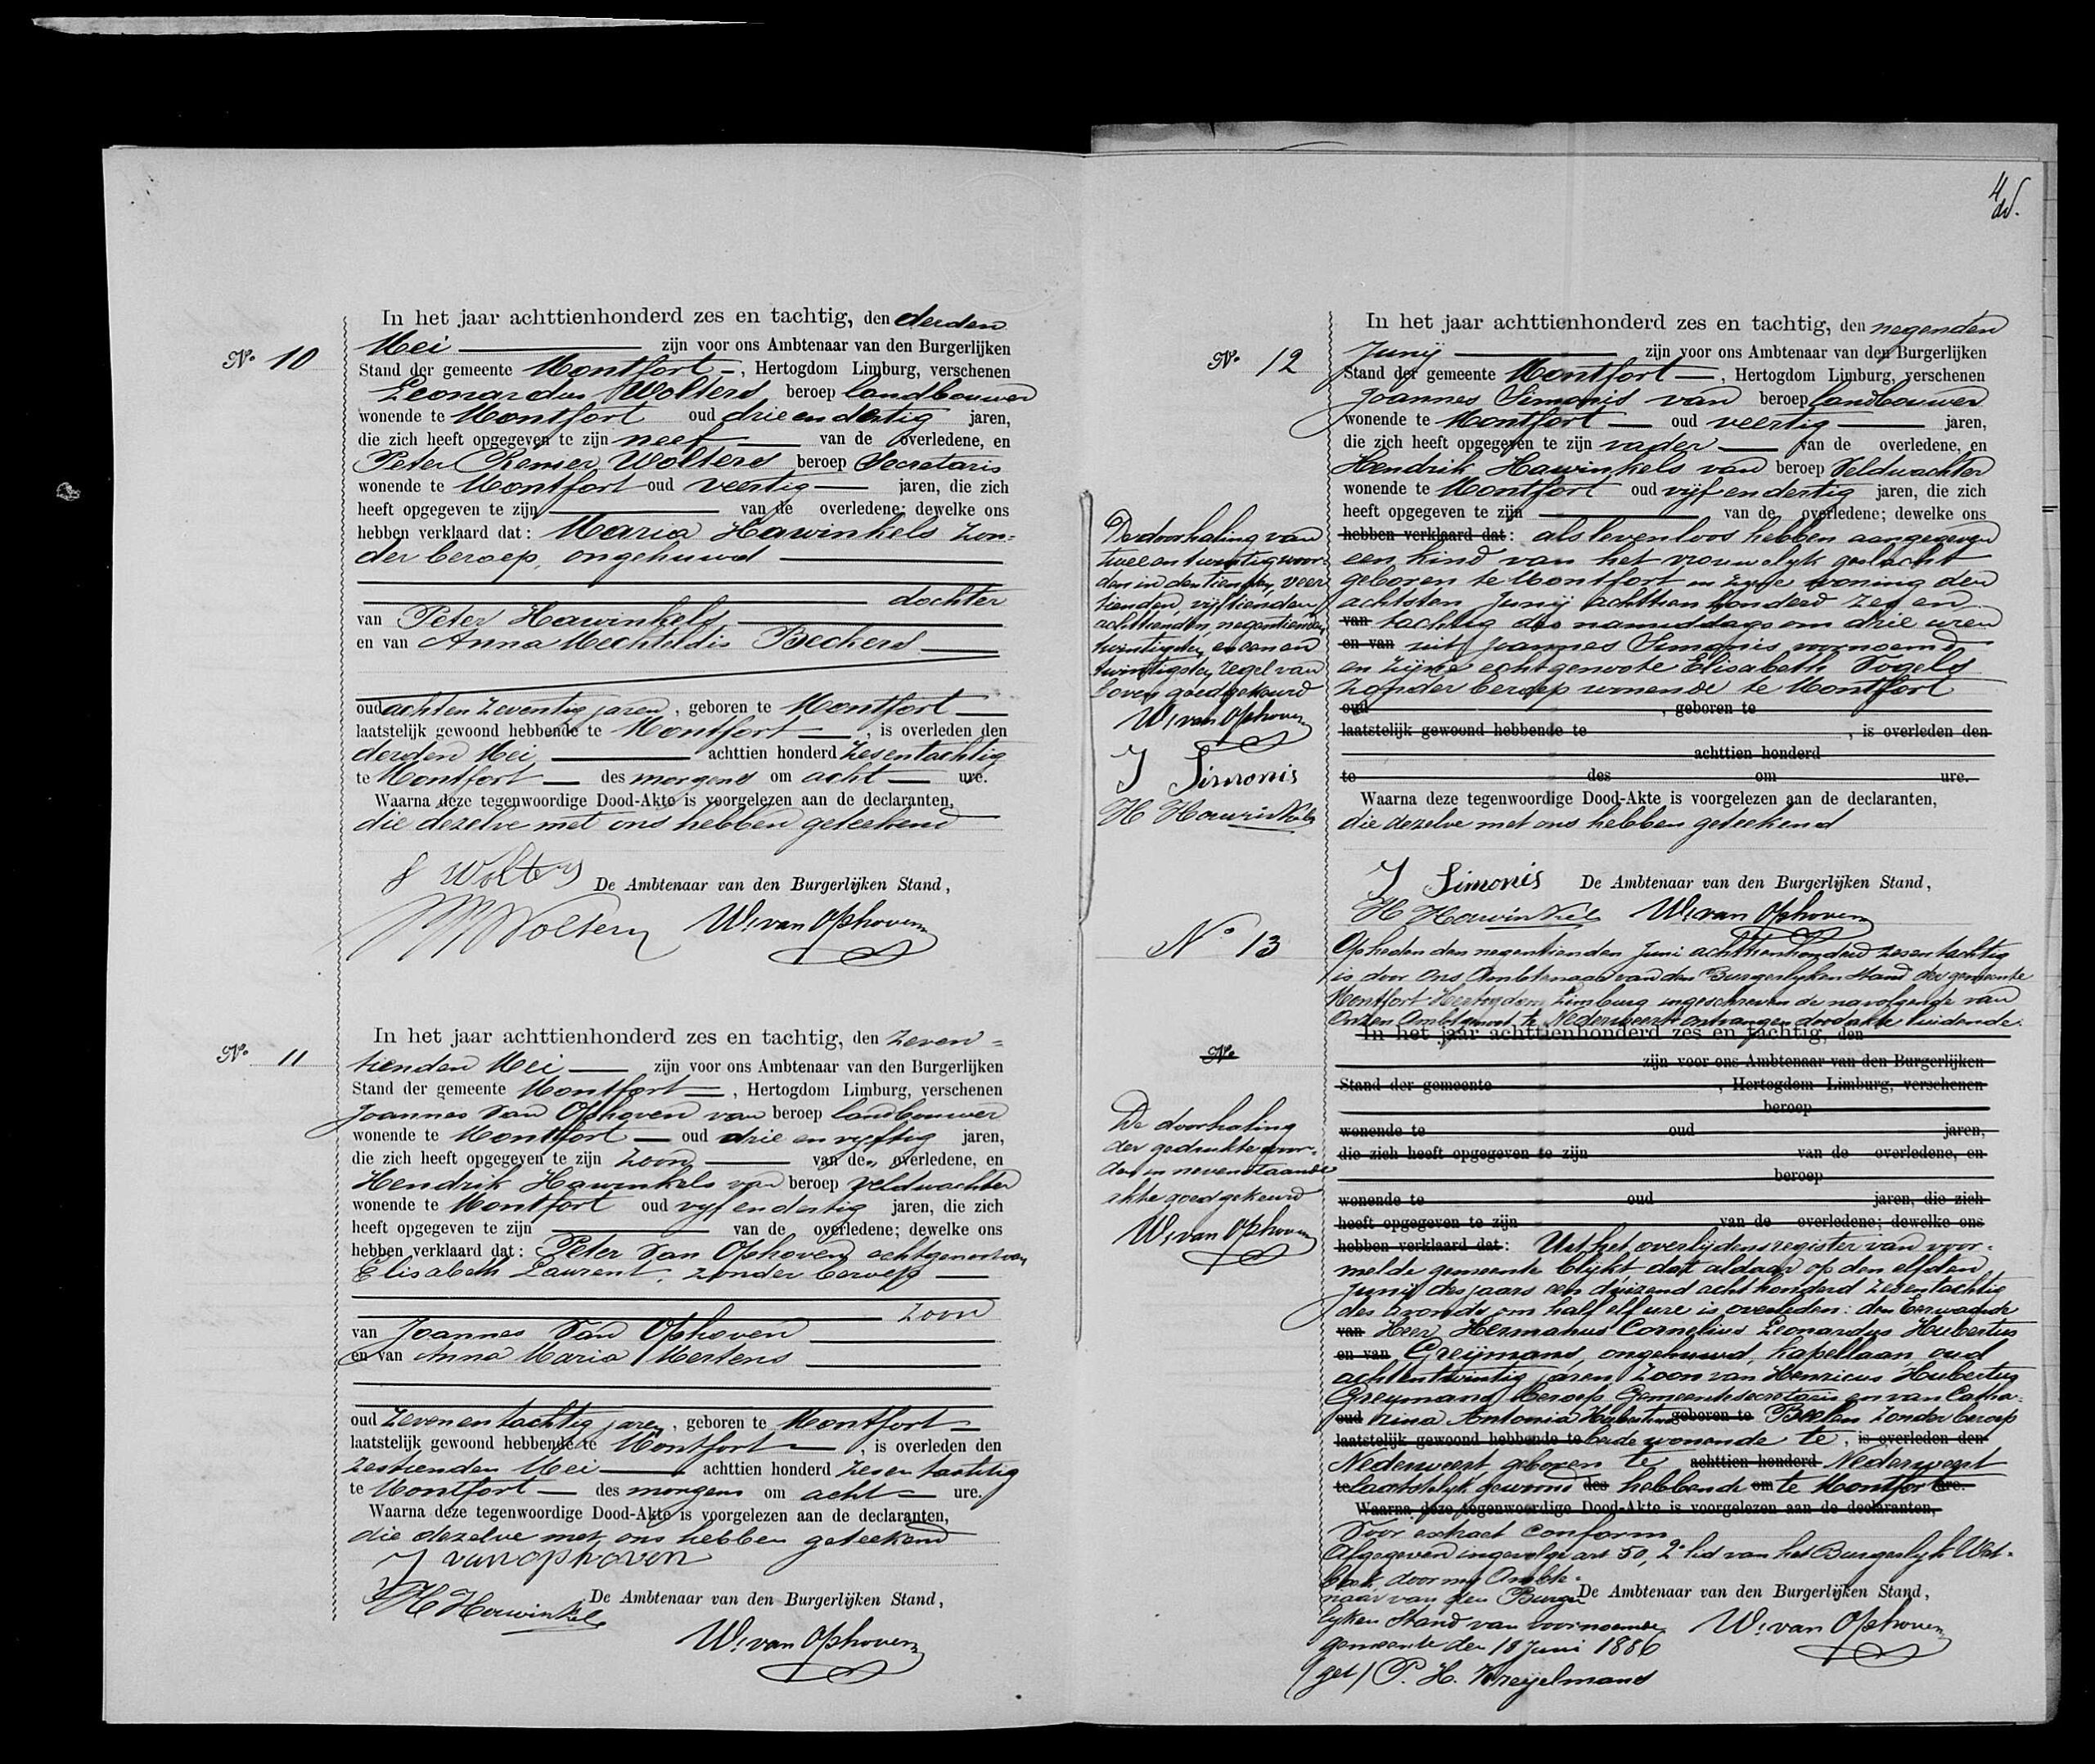 No. 10
In het jaar achttienhonderd zes en tachtig, den derden
Mei zijn voor ons Ambtenaar van den Burgerlijken
Stand der gemeente Montfort, Hertogdom Limburg, verschenen
Leonardus Wolters beroep landbouwer
wonende te Montfort oud drie en dertig jaren,
die zich heeft opgegeven te zijn neef van de overledene, en
Peter Renier Wolters beroep Secretaris
wonende te Montfort oud veertig jaren, die zich
heeft opgegeven te zijn van de overledene; dewelke ons
hebben verklaard dat: Maria Hawinkels zon=
der beroep, ongehuwd
dochter
van Peter Hawinkels
en van Anna Mechtildis Beckers
oud acht en zeventig jaren, geboren te Montfort
laatstelijk gewoond hebbende te Montfort, is overleden den
derden Mei achttien honderd zesentachtig
te Montfort des morgens om acht ure.
Waarna deze tegenwoordige Dood-Akte is voorgelezen aan de declaranten,
die dezelve met ons hebben geteekend
Wolters
De Ambtenaar van den Burgerlijken Stand,
Wolters W. van Ophoven
No. 11
In het jaar achttienhonderd zes en tachtig, den zeven=
tienden Mei zijn voor ons Ambtenaar van den Burgerlijken
Stand der gemeente Montfort, Hertogdom Limburg, verschenen
Joannes van Ophoven van beroep landbouwer
wonende te Montfort oud drie en vijftig jaren,
die zich heeft opgegeven te zijn zoon van den overledene, en
Hendrik Hawinkels van beroep veldwachter
wonende te Montfort oud vijf en dertig jaren, die zich
heeft opgegeven te zijn van de overledene; dewelke ons
hebben verklaard dat: Peter van Ophoven echtgenoot van
Elisabeth Laurent, zonder beroep
zoon
van Joannes van Ophoven
en van Anna Maria Mertens
oud zeven en tachtig jaren, geboren te Montfort
laatstelijk gewoond hebbende te Montfort, is overleden den
zestienden Mei achttien honderd zes en tachtig
te Montfort des morgens om acht ure.
Waarna deze tegenwoordige Dood-Akte is voorgelezen aan de declaranten,
die dezelve met ons hebben geteekend
J van ophoven
H Hawinkels De Ambtenaar van den Burgerlijken Stand,
W. van Ophoven
4
No. 12
In het jaar achttienhonderd zes en tachtig, den negenden
Junij zijn voor ons Ambtenaar van den Burgerlijken
Stand der gemeente Montfort, Hertogdom Limburg, verschenen
Joannes Simonis van beroep landbouwer
wonende te Montfort oud veertig jaren,
die zich heeft opgegeven te zijn vader van de overledene, en
Hendrik Hawinkels van beroep Veldwachter
wonende te Montfort oud vijf en dertig jaren, die zich
heeft opgegeven te zijn van de overledene; dewelke ons
hebben verklaard dat: als levenloos hebben aangegeven
een kind van het vrouwelyk geslacht
geboren te Montfort in zyne woning den
achtsten Junij achttien honderd zes en
van tachtig des namiddags om drie uren
en van uit Joannes Simonis voornoemd
en zijne echtgenoote Elisabeth Vogels
zonder beroep wonende te Montfort
oud , geboren te
laatstelijk gewoond hebbende te , is overleden den
achttien honderd
te des om ure.
Waarna deze tegenwoordige Dood-Akte is voorgelezen aan de declaranten,
die dezelve met ons hebben geteekend
J Simonis De Ambtenaar van den Burgerlijken Stand,
H Hawinkels W. van Ophoven
De doorhaling van
twee en twintig woor
den in den tienden, veer
tienden, vijftienden,
achttienden, negentienden,
twintigsten, en een en
twintigsten regel van
boven goedgekeurd
W. van Ophoven
J Simonis
H Hawinkels
No 13
Op heden den negentienden Juni achttienhonderd zesentachtig
is door Ons Ambtenaar van den Burgerlyken Stand der gemeente
Montfort Hertogdom Limburg ingeschreven de navolgende van
Onzen Ambtgenoot te Nederweert ontvangen doodakte luidende:
In het jaar achttienhonderd zes en tachtig, den
No.
zijn voor ons Ambtenaar van den Burgerlijken
Stand der gemeente , Hertogdom Limburg, verschenen
beroep
wonende te oud jaren,
die zich heeft opgegeven te zijn van de overledene, en
beroep
wonende te oud jaren, die zich
heeft opgegeven te zijn van de overledene; dewelke ons
hebben verklaard dat: Uit het overlijdensregister van voor-
melde gemeente blijkt dat aldaar op den elfden
Junij des jaars een duizend acht honderd zesentachtig
des avonds om half elf ure is overleden: den Eerwaarde
van Heer Hermanus Cornelius Leonardus Hubertus
en van Greijmans, ongehuwd, kapellaan, oud
achtentwintig jaren, Zoon van Henricus Hubertus
Greymans, beroep Gemeentesecretaris en van Catha-
oud rina Antonia Hubertina geboren te Beelen zonder beroep
laatstelijk gewoond hebbende te beide wonende te, is overleden den
Nederweert geboren te achttien honderd Nederweert
te laatstelijk gewoond des hebbende om te Montfort ure.
Waarna deze tegenwoordige Dood-Akte is voorgelezen aan de declaranten,
Voor extract conform
Afgegeven ingevolge art 50, 2e lid van het Burgerlyk Wet-
boek, door my Ambte-
naar van den Burger De Ambtenaar van den Burgerlijken Stand,
lyken Stand van voornoemde W. van Ophoven
gemeente den 18 Juni 1886
(get) P. H. Kreijelmans
De doorhaling
der gedrukte woor-
den in nevenstaande
akte goedgekeurd
W. van Ophoven